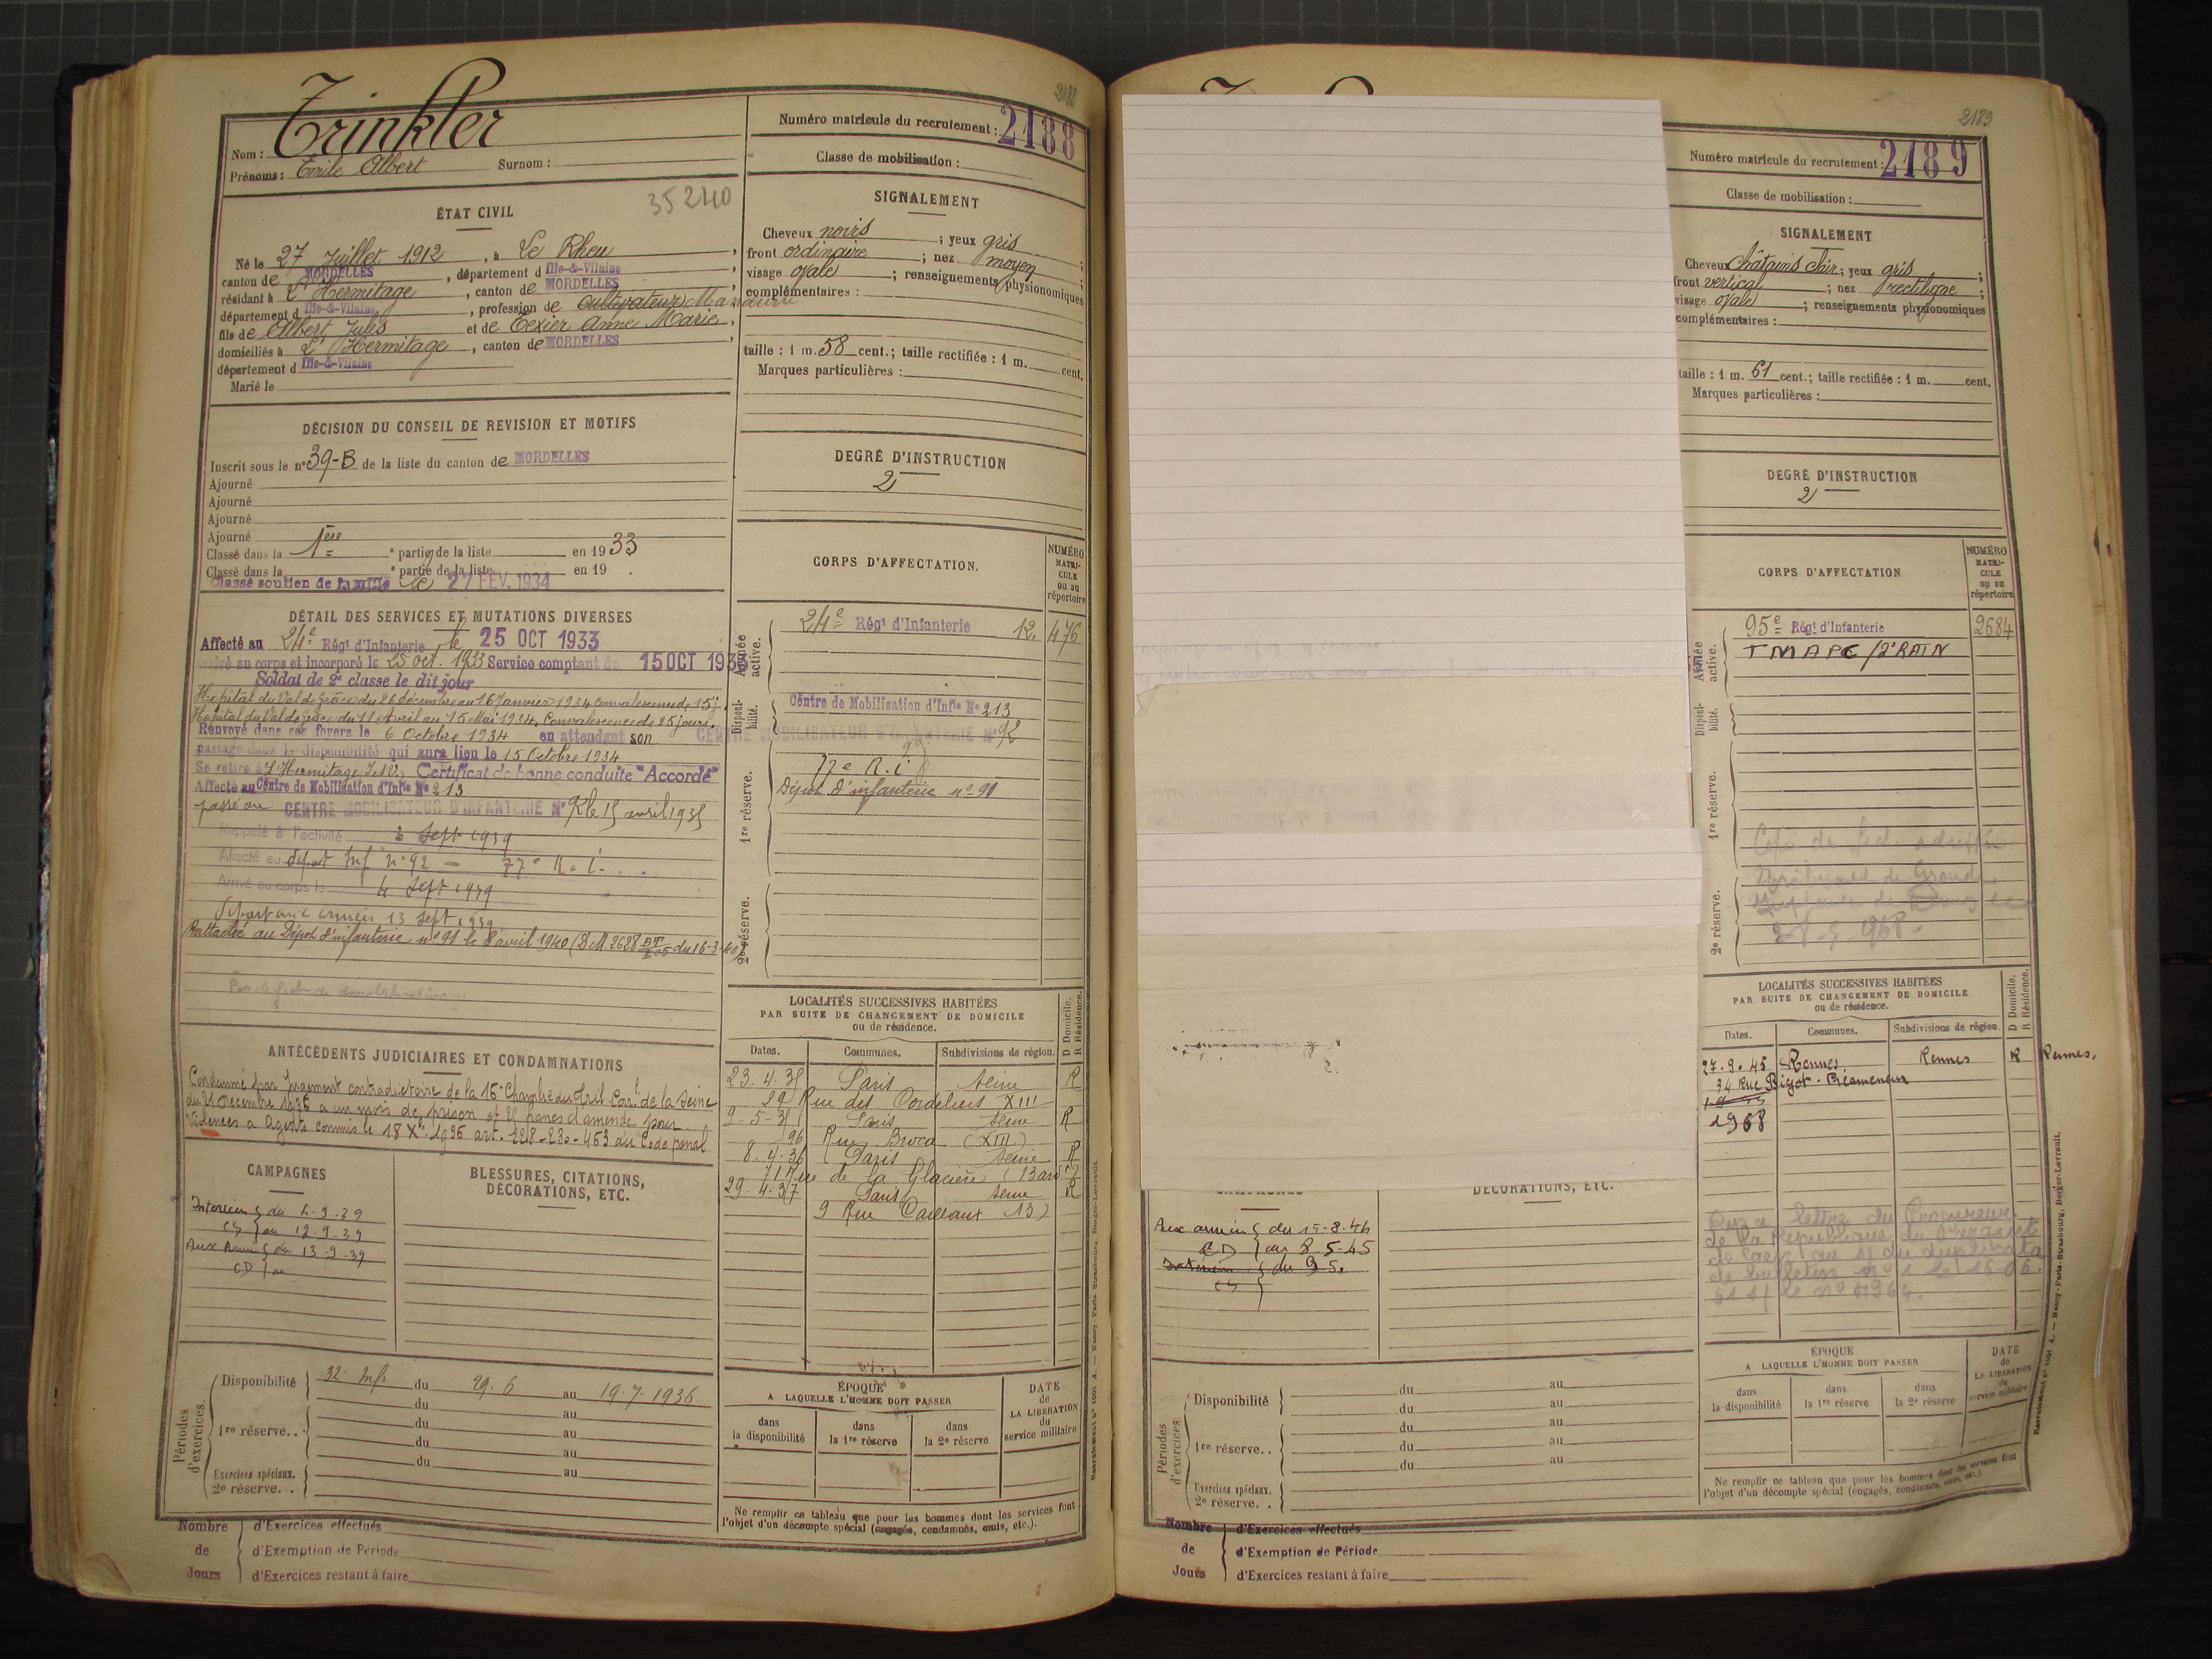 2188
Nom : Trinkler
Prénoms : Emile Albert Surnom :
Numéro matricule du recrutement : 2188
Classe de mobilisation :
35240
ÉTAT CIVIL
Né le 27 Juillet 1912, à Le Rheu,
canton de MORDELLES, département d Ille-&-Vilaine,
résidant à L'Hermitage, canton de MORDELLES,
département d Ille-&-Vilaine, profession de cultivateur
fils de Albert Jules et de Texier Anne Marie,
domiciliés à L'Hermitage, canton de MORDELLES,
département d Ille-&-Vilaine
Marié le
DÉCISION DU CONSEIL DE REVISION ET MOTIFS
Inscrit sous le n° 39-B de la liste du canton de MORDELLES
Ajourné
Ajourné
Ajourné
Ajourné
Classé dans la 1ère e partie de la liste en 1933
Classé dans la e partie de la liste en 19 .
Classé soutien de famille le 27 FEV. 1934
DÉTAIL DES SERVICES ET MUTATIONS DIVERSES
Affecté au 24e Régt d'Infanterie le 25 OCT 1933
Arrivé au corps et incorporé le 25 oct. 1933 Service comptant du 15 OCT 193
Soldat de 2e classe le dit jour
Hopital du Val de Grâce du 26 décembre au 16 Janvier 1934 convalescence de 15 j.
Hopital du Val de grâce du 11 Avril au 15 Mai 1934. Convalescence de 25 jours.
Renvoyé dans ses foyers le 6 Octobre 1934 en attendant son
passage dans la disponibilité qui aura lieu le 15 Octobre 1934
Se retire à L'Hermitage I.&V. Certificat de bonne conduite "Accordé"
Affecté au Centre de Mobilisation d'Infie N° 213
passé au CENTRE MOBILISATEUR D'INFANTERIE N° 92 le 15 avril 1935
Rappelé à l'activité 3 Sept 1939
Affecté au dépot Inf n° 92 - 77e R. i.
Arrivé au corps le 4 Sept 1939
Départ aux armées 13 Sept 1939
Rattaché au Dépot d'infanterie n° 91 le 8 avril 1940 (D.M. 2628 du 16-3-40)
Pas de fiche de démobilisation
ANTÉCÉDENTS JUDICIAIRES ET CONDAMNATIONS
Condamné par Jugement contradictoire de la 16e Chambre du Tril Corl de la Seine
du 21 Décembre 1936 à un mois de prison et 25 francs d'amende pour
violences a Agents commis le 18 Xbre 1936 art. 228-230-463 du Code pénal
CAMPAGNES
Intérieur du 4-9-39
CS au 12-9-39
Aux Armées du 13-9-39
CD au
BLESSURES, CITATIONS,
DÉCORATIONS, ETC.
Périodes d'exercices.
Disponibilité 32e Inf. du 29.6 au 19.7.1936
du au
1re réserve. . du au
du au
du au
Exercices spéciaux.
2e réserve. .
Nombre de Jours
d'Exercices effectués
d'Exemption de Période
d'Exercices restant à faire
SIGNALEMENT
Cheveux noirs ; yeux gris
front ordinaire ; nez moyen ;
visage ovale ; renseignements physionomiques
complémentaires :
taille : 1 m. 58 cent. ; taille rectifiée : 1 m. cent.
Marques particulières :
DEGRÉ D'INSTRUCTION
2
CORPS D'AFFECTATION.
NUMÉRO MATRICULE ou au répertoire
Armée active.
24e Régt d'Infanterie 12. 476
Disponibilité.
Centre de Mobilisation d'Infie N° 213
CENTRE MOBILISATEUR D'INFANTERIE N° 92
1re réserve.
77e R.i
Dépot d'infanterie n° 91
2e réserve.
LOCALITÉS SUCCESSIVES HABITÉES
PAR SUITE DE CHANGEMENT DE DOMICILE
ou de résidence.
D Domicile. R Résidence.
Dates. Communes. Subdivisions de région.
23.4.35 Paris Seine R
29 Rue des Cordeliers XIII
9-5-35 Paris Seine R
96 Rue Broca (XIII)
8.4.36 Paris Seine R
71 Rue de la Glacière (13 arrt)
29.4.37 Paris Seine R
9 Rue Cailleaux (13)
ÉPOQUE
A LAQUELLE L'HOMME DOIT PASSER
dans la disponibilité
dans la 1re réserve
dans la 2e réserve
DATE de LA LIBERATION du service militaire
Ne remplir ce tableau que pour les hommes dont les services font
l'objet d'un décompte spécial (engagés, condamnés, omis, etc.).
2189
Numéro matricule du recrutement : 2189
Classe de mobilisation :
SIGNALEMENT
Cheveux Châtains clair ; yeux gris ;
front vertical ; nez rectiligne ;
visage ovale ; renseignements physionomiques
complémentaires :
taille : 1 m. 61 cent. ; taille rectifiée : 1 m. cent.
Marques particulières :
DEGRÉ D'INSTRUCTION
2
CORPS D'AFFECTATION
NUMÉRO MATRICULE ou au répertoire
Armée active.
95e Régt d'Infanterie 2684
Disponibilité.
1re réserve.
2e réserve.
LOCALITÉS SUCCESSIVES HABITÉES
PAR SUITE DE CHANGEMENT DE DOMICILE
ou de résidence.
D Domicile. R Résidence.
Dates. Communes. Subdivisions de région.
27.9.45 Rennes Rennes R Rennes.
34 Rue Bigot
1968
DÉCORATIONS, ETC.
Aux armées du 15-8-44
CD au 8-5-45
Intérieur du 9-5.
CS
Périodes d'exercices.
Disponibilité du au
du au
1re réserve. . du au
du au
du au
Exercices spéciaux.
2e réserve. .
Nombre de Jours
d'Exercices effectués
d'Exemption de Période
d'Exercices restant à faire
ÉPOQUE
A LAQUELLE L'HOMME DOIT PASSER
dans la disponibilité
dans la 1re réserve
dans la 2e réserve
DATE de LA LIBERATION du service militaire
Ne remplir ce tableau que pour les hommes dont les services font
l'objet d'un décompte spécial (engagés, condamnés, omis, etc.).